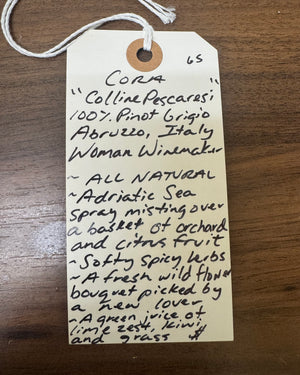 65
CORA
"Colline Pescaresi"
100% Pinot Grigio
Abruzzo, Italy
Woman Winemaker
~ ALL NATURAL
~Adriatic Sea
spray misting over
a basket of orchard
and citrus fruit
~ Softly spicy herbs
~A fresh wild flower
bouquet picked by
a new lover
~A green juice of
lime zest, kiwi,
and grass $